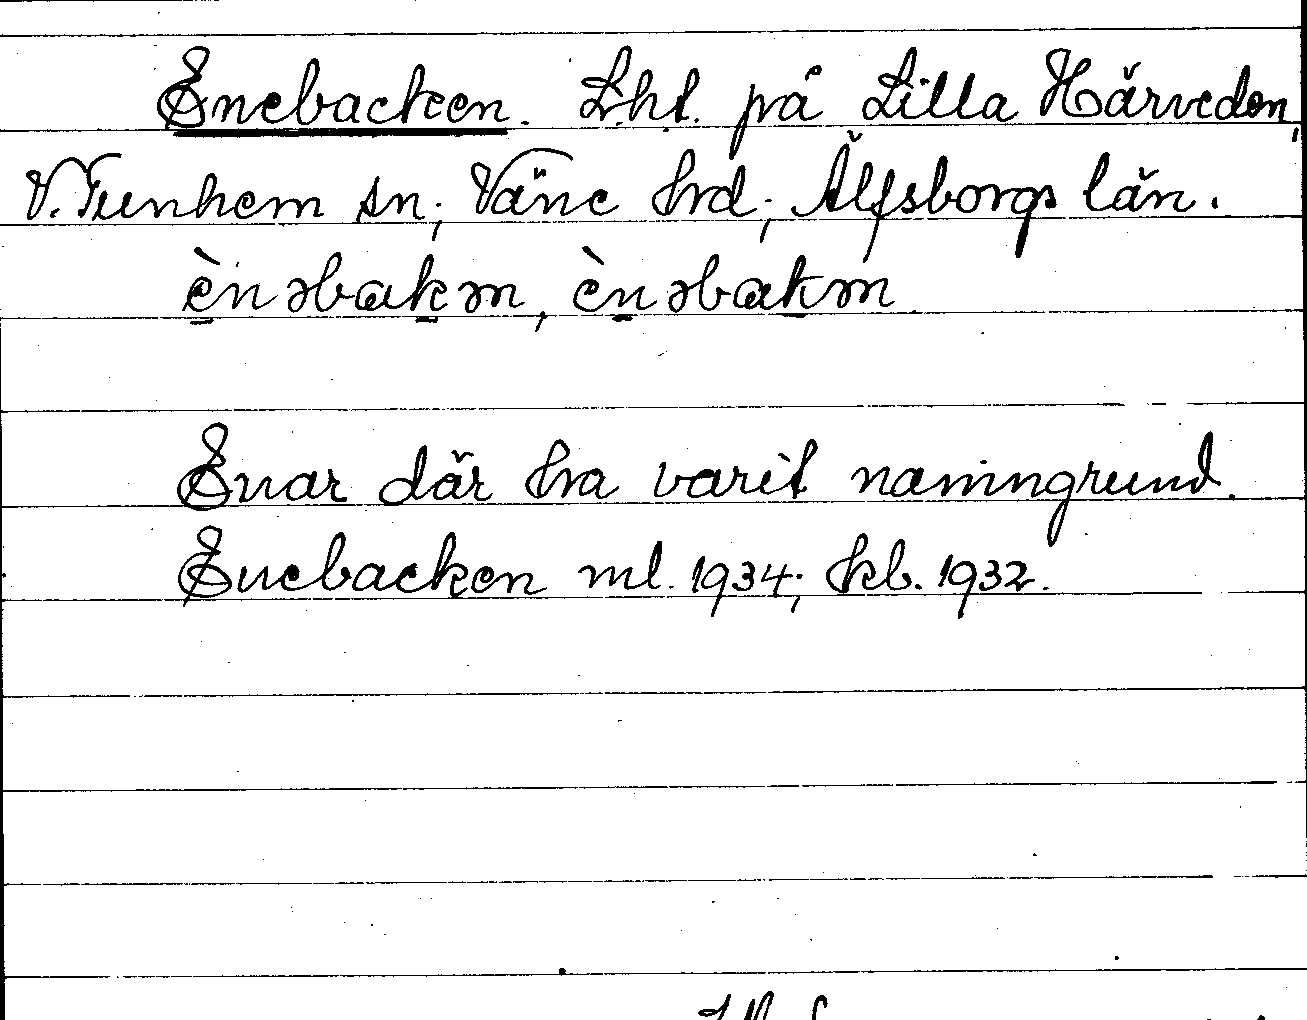 Enebacken. Lht. på Lilla Härveden,
V. Tunhem sn; Väne hrd; Älfsborgs län.
èn əbakən, èn əbakən
Enar där ha varit namngrund.
Enebacken ml. 1934; kb. 1932.